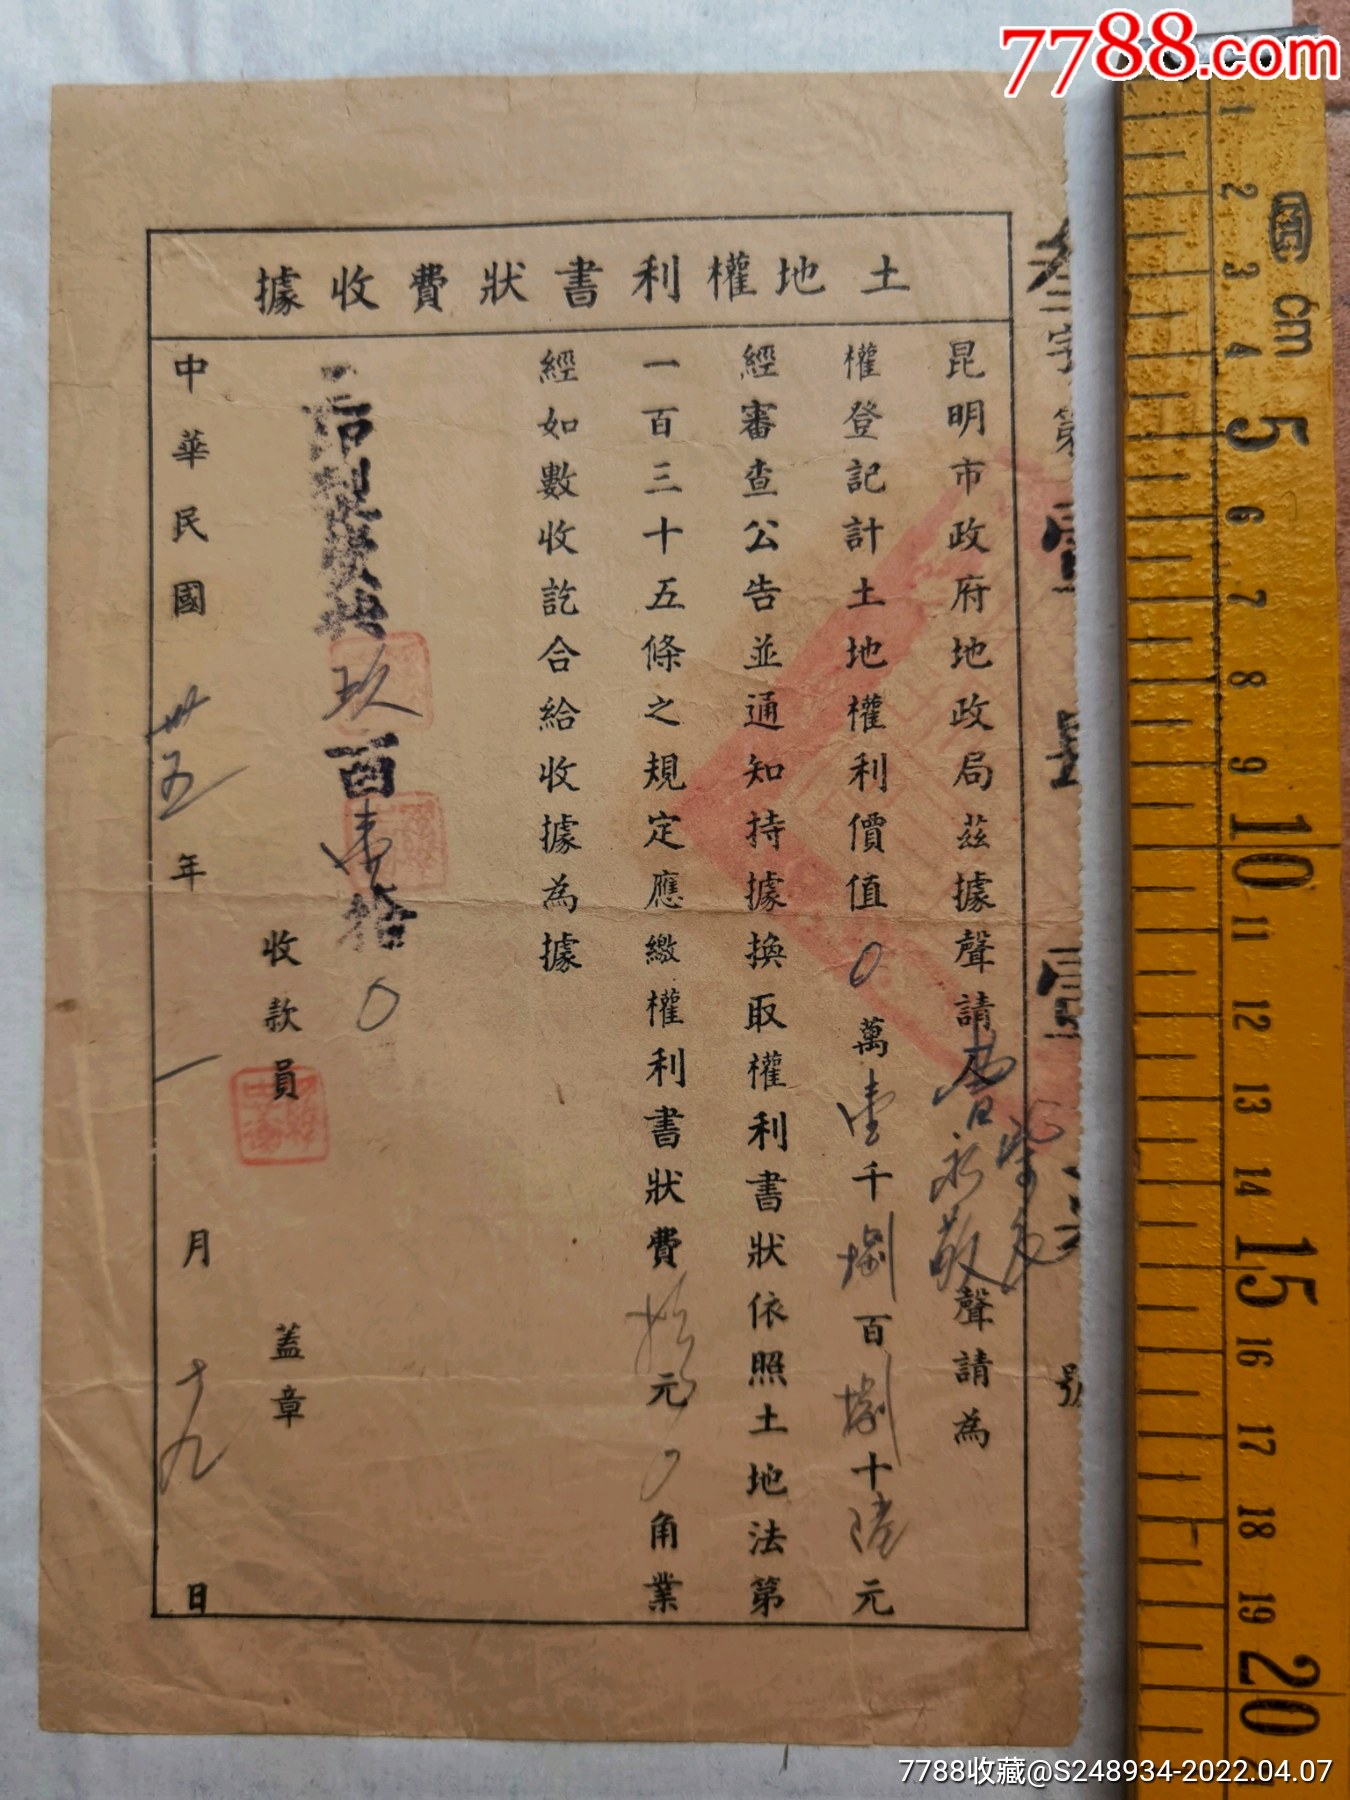 7788.com
土地權利書狀費收據
昆明市政府地政局茲據聲請人曹永敬聲請為
權登記計土地權利價值0萬壹千捌百捌十陸元
經審查公告並通知持據換取權利書狀依照土地法第
一百三十五條之規定應繳權利書狀費拾元0角業
經如數收訖合給收據為據
玖百壹拾0
收款員 蓋章
中華民國卅五年一月十九日
叁字第壹壹號
cm
1
2
3
4
5
6
7
8
9
10
11
12
13
14
15
16
17
18
19
20
7788收藏@S248934-2022.04.07